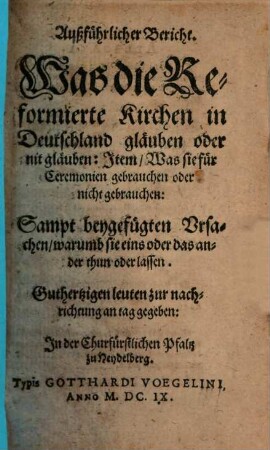 Außführlicher Bericht.
Was die Re-
formierte Kirchen in
Deutschland gläuben oder
nit gläuben: Item/ Was sie für
Ceremonien gebrauchen oder
nicht gebrauchen:
Sampt beygefügten Vrsa-
chen/ warumb sie eins oder das an-
der thun oder lassen.
Guthertzigen leuten zur nach-
richtung an tag gegeben:
In der Churfürstlichen Pfaltz
zu Heydelberg.
Typis GOTTHARDI VOEGELINI,
ANNO M. DC. IX.